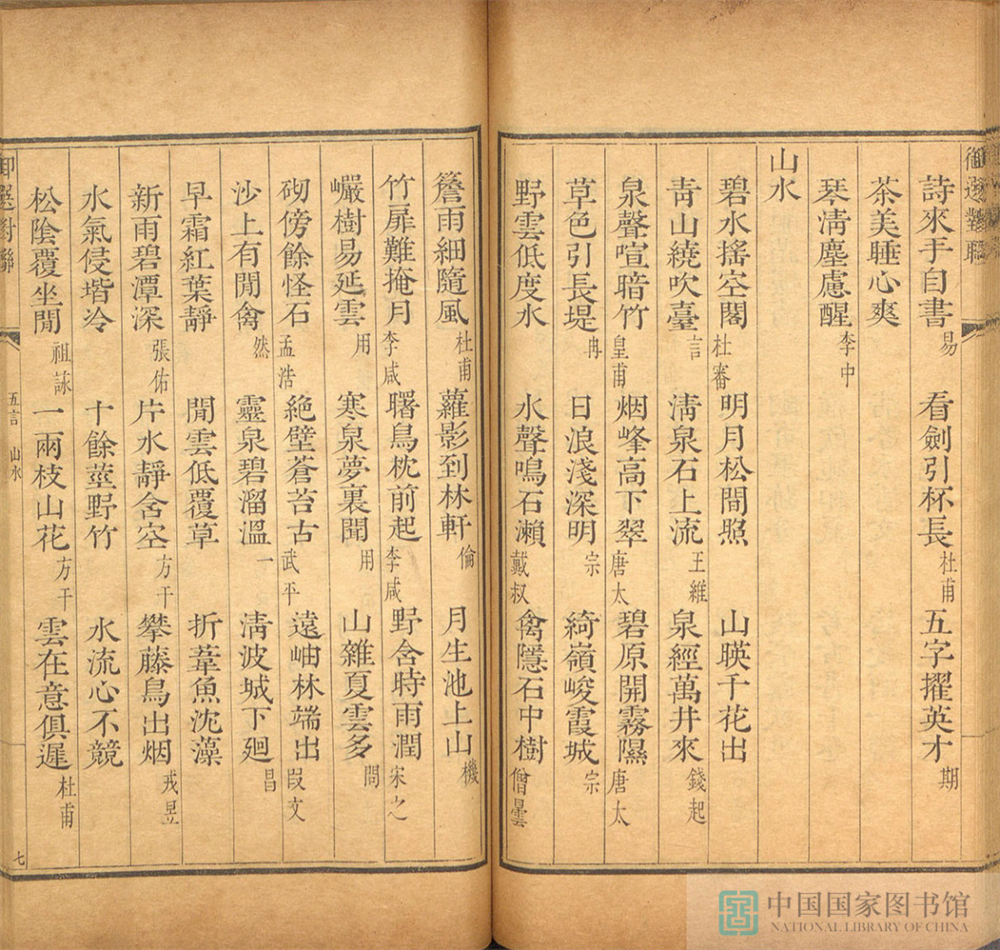 御選對聯
詩來手自書 易 看劍引杯長 杜甫 五字擢英才 期
茶美睡心爽
琴淸塵慮醒 李中
山水
碧水搖空閣 明月松間照 山暎千花出
靑山繞吹臺 杜審言 淸泉石上流 王維 泉經萬井來 錢起
泉聲喧暗竹 烟峰高下翠 碧原開霧隰
草色引長堤 皇甫冉 日浪淺深明 唐太宗 綺嶺峻霞城 唐太宗
野雲低度水 水聲鳴石瀨 禽隱石中樹
簷雨細隨風 杜甫 蘿影到林軒 戴叔倫 月生池上山 僧曇機
竹扉難掩月 曙鳥枕前起 野含時雨潤
巗樹易延雲 李咸用 寒泉夢裏聞 李咸用 山雜夏雲多 宋之問
砌傍餘怪石 絶壁蒼苔古 遠岫林端出
沙上有閒禽 孟浩然 靈泉碧溜溫 武平一 淸波城下廻 叚文昌
早霜紅葉靜 閒雲低覆草 折葦魚沈藻
新雨碧潭深 張佑 片水靜含空 方干 攀藤鳥出烟 戎昱
水氣侵堦冷 十餘莖野竹 水流心不競
松陰覆坐閒 祖詠 一兩枝山花 方干 雲在意俱遲 杜甫
御選對聯 五言 山水 七
中国国家图书馆
NATIONAL LIBRARY OF CHINA